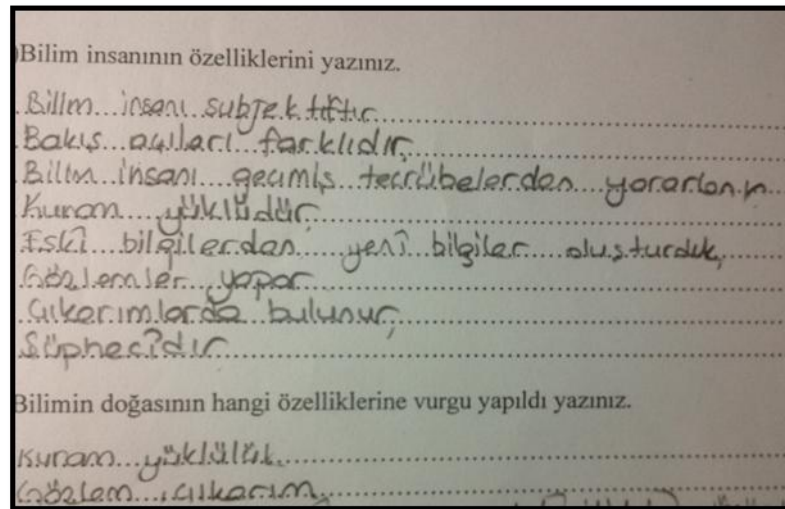 )Bilim insanının özelliklerini yazınız.
Bilim insanı subjektiftir
Bakış açıları farklıdır,
Bilim insanı geçmiş tecrübelerden yararlanır
Kuram yüklüdür,
Eski bilgilerden yeni bilgiler oluşturduk,
Gözlemler yapar
Çıkarımlarda bulunur,
Şüphecidir
Bilimin doğasının hangi özelliklerine vurgu yapıldı yazınız.
Kuram yüklülük
Gözlem, çıkarım,